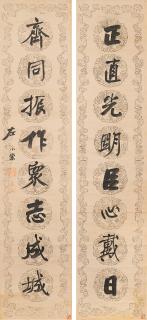 正直光明臣心戴日
齊同振作眾志成城